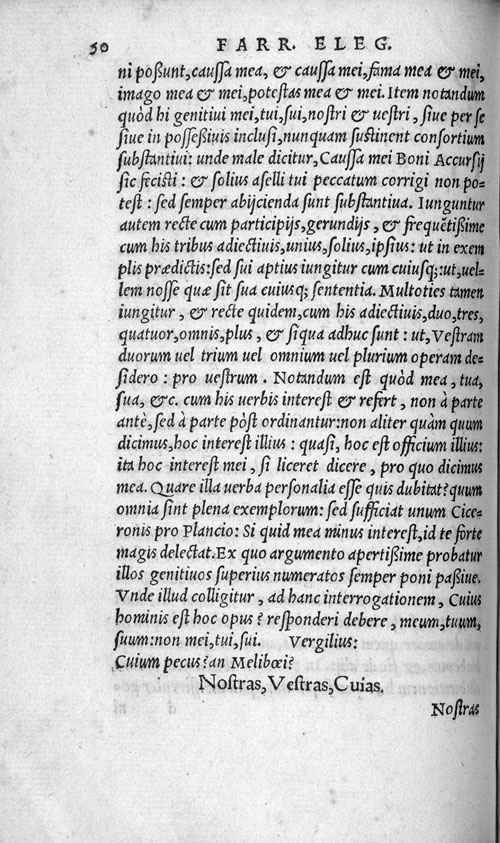 50 FARR. ELEG.
ni poßunt, caussa mea, & caussa mei, fama mea & mei,
imago mea & mei, potestas mea & mei. Item notandum
quòd hi genitiui mei, tui, sui, nostri & uestri, siue per se
siue in posseßiuis inclusi, nunquam sustinent consortium
substantiui: unde male dicitur, Caussa mei Boni Accursij
sic fecisti: & solius aselli tui peccatum corrigi non po-
test: sed semper abijcienda sunt substantiua. Iunguntur
autem recte cum participijs, gerundijs, & frequētißime
cum his tribus adiectiuis, unius, solius, ipsius: ut in exem
plis prædictis: sed sui aptius iungitur cum cuiusq;: ut, uel-
lem nosse quæ sit sua cuiusq; sententia. Multoties tamen
iungitur, & recte quidem, cum his adiectiuis, duo, tres,
quatuor, omnis, plus, & siqua adhuc sunt: ut, Vestram
duorum uel trium uel omnium uel plurium operam de-
sidero: pro uestrum. Notandum est quòd mea, tua,
sua, &c. cum his uerbis interest & refert, non à parte
antè, sed à parte pòst ordinantur: non aliter quàm quum
dicimus, hoc interest illius: quasi, hoc est officium illius:
ita hoc interest mei, si liceret dicere, pro quo dicimus
mea. Quare illa uerba personalia esse quis dubitat? quum
omnia sint plena exemplorum: sed sufficiat unum Cice-
ronis pro Plancio: Si quid mea minus interest, id te forte
magis delectat. Ex quo argumento apertißime probatur
illos genitiuos superius numeratos semper poni paßiue.
Vnde illud colligitur, ad hanc interrogationem, Cuius
hominis est hoc opus? responderi debere, meum, tuum,
suum: non mei, tui, sui. Vergilius:
Cuium pecus? an Melibœi?
Nostras, Vestras, Cuias.
Nostras